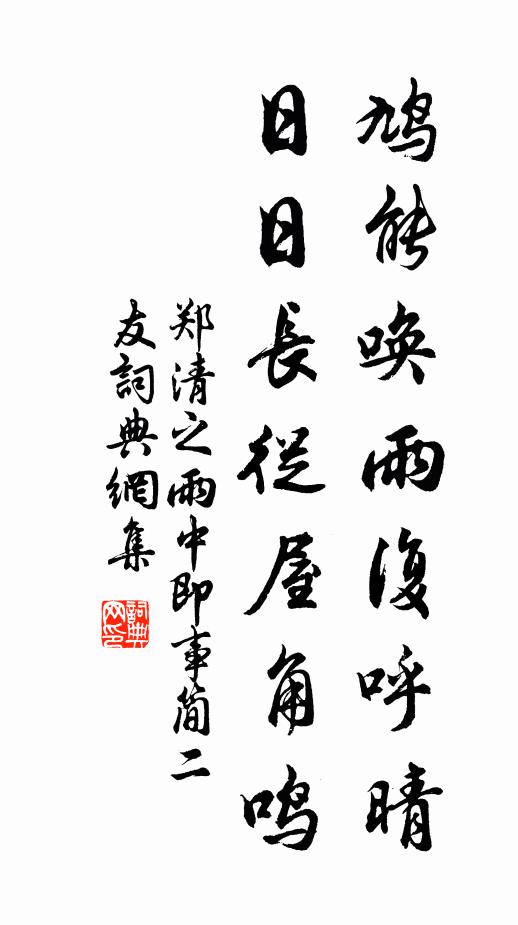 鸠能唤雨復呼晴
日日長從屋角鸣
郑清之雨中即事简二
友詞典網集
詞典网印